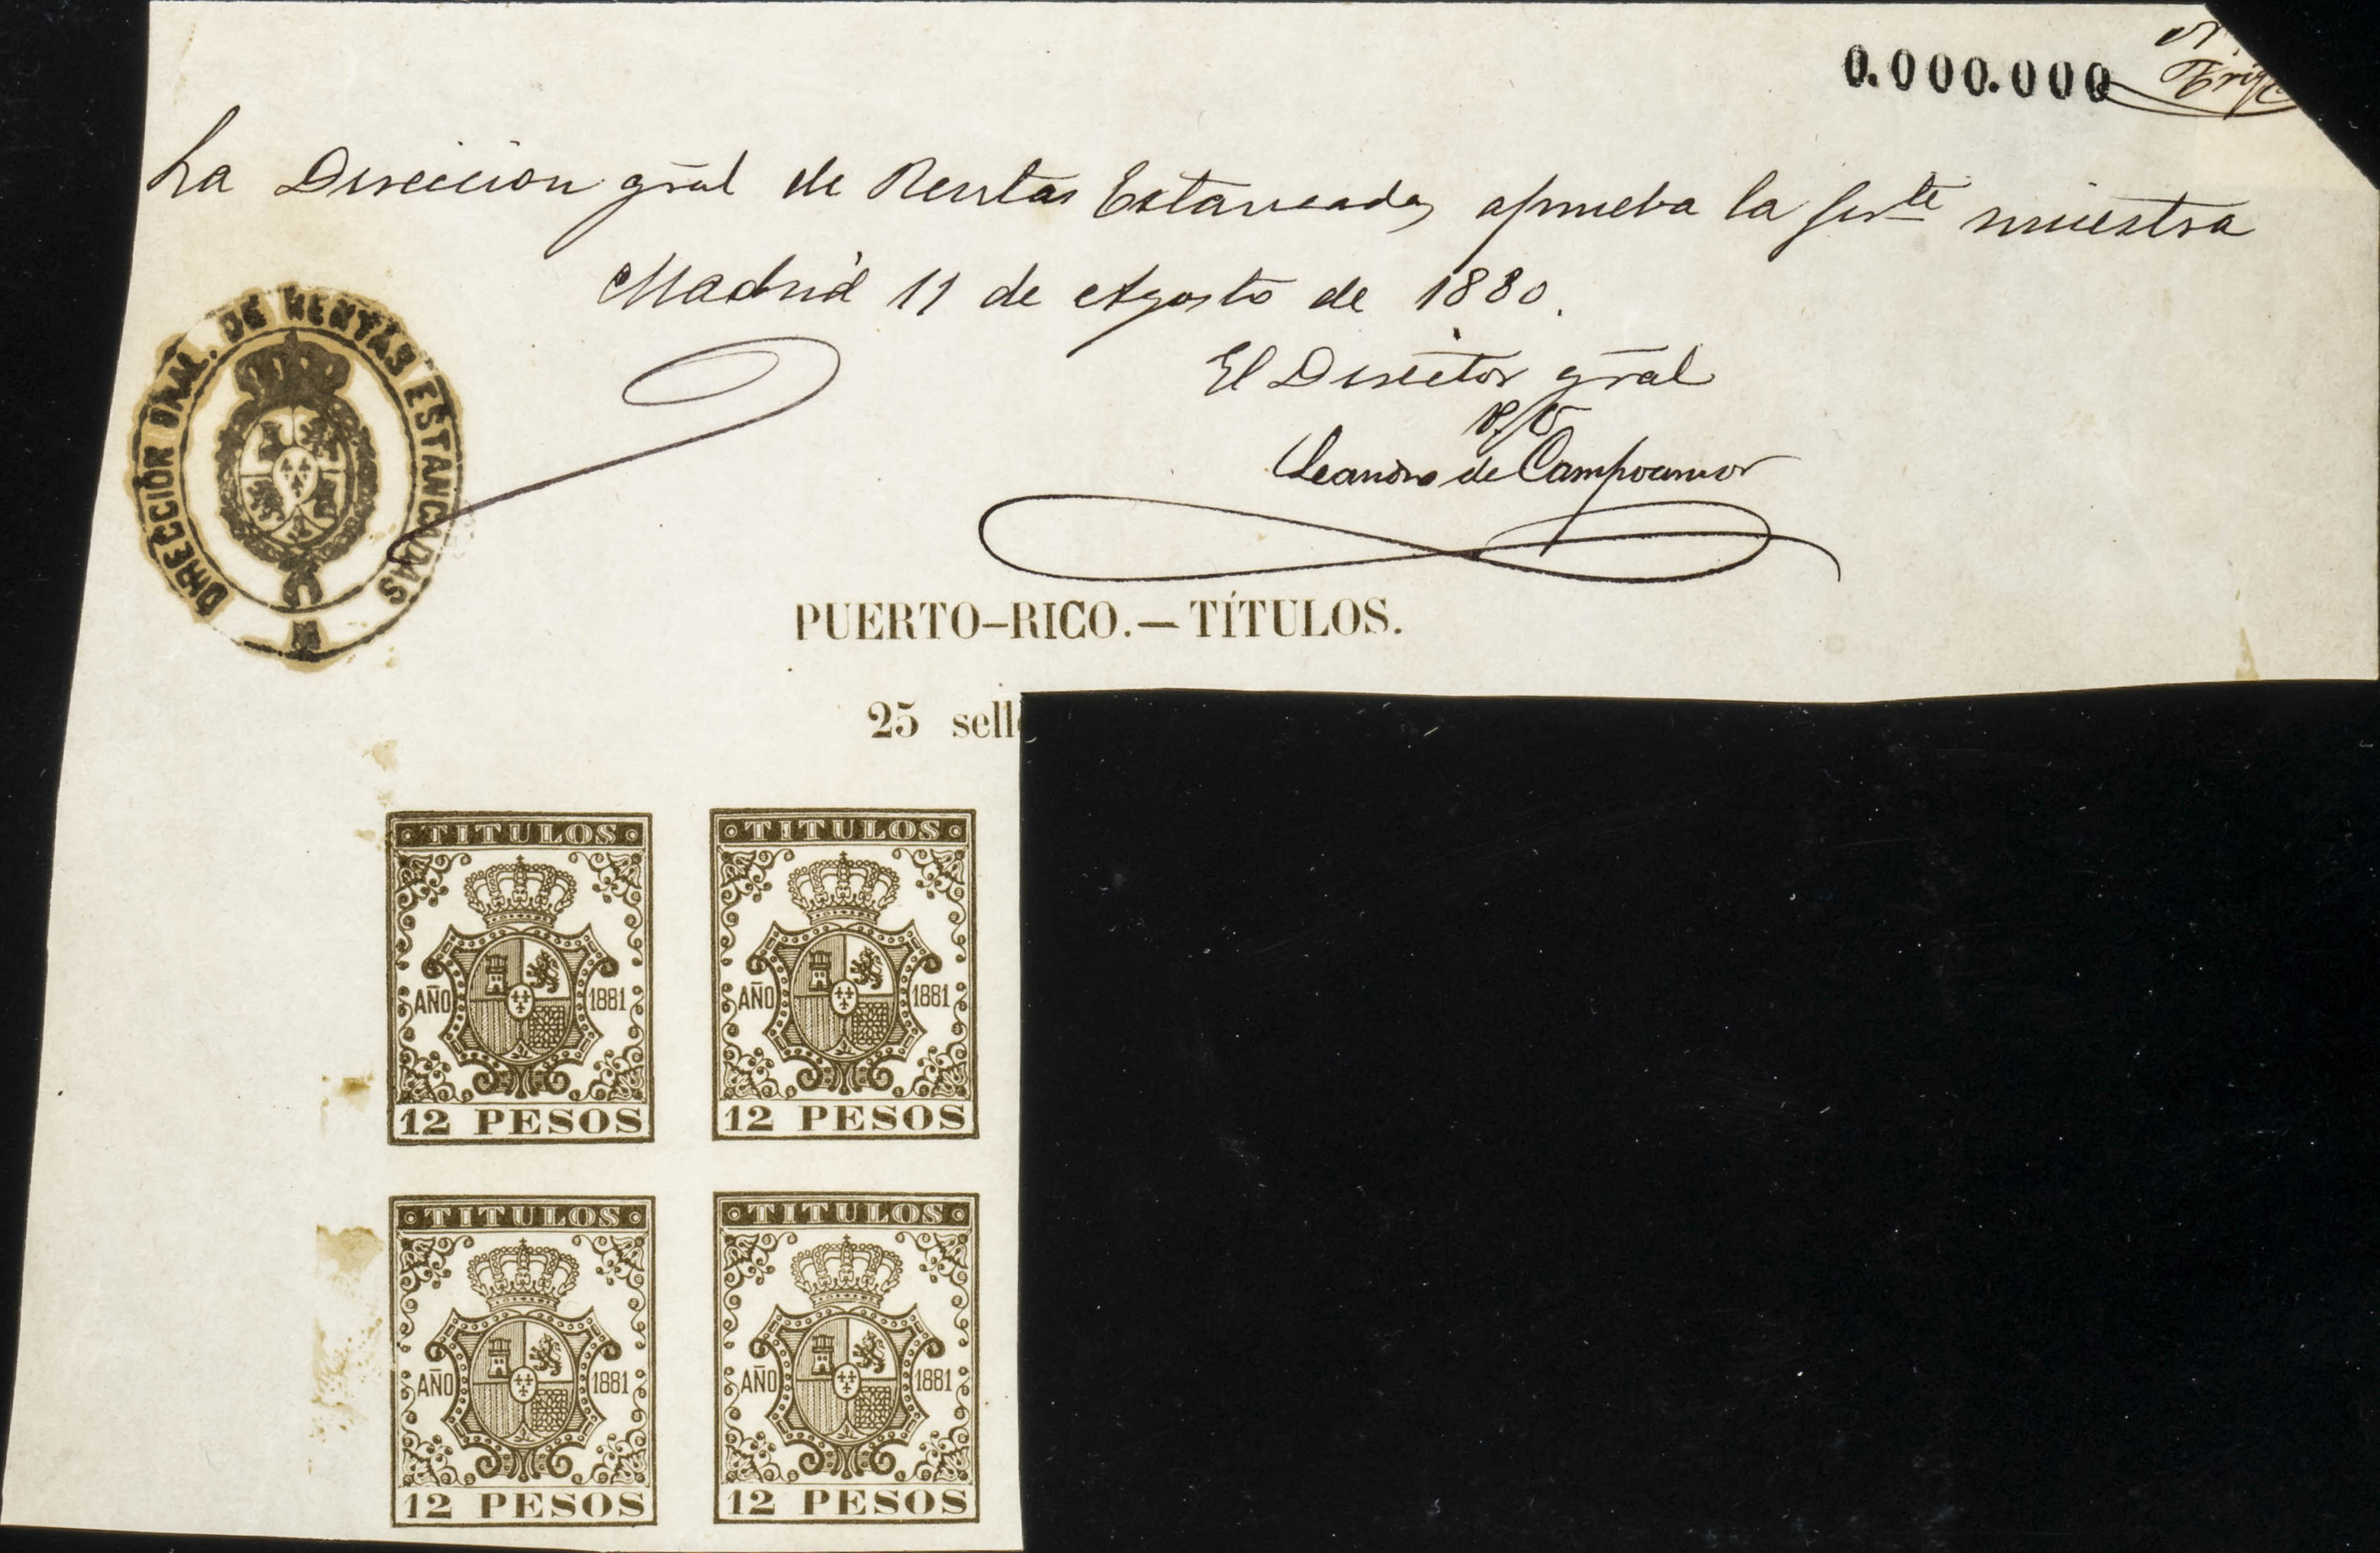 0.000.000
La Direccion gral de Rentas Estancadas aprueba la preste muestra
Madrid 11 de Agosto de 1880.
El Director gral
P/O
Leandro de Campoamor
DIRECCIÓN GRAL. DE RENTAS ESTANCADAS
PUERTO-RICO.—TÍTULOS.
25 sell
TITULOS TITULOS
AÑO 1881 AÑO 1881
12 PESOS 12 PESOS
TITULOS TITULOS
AÑO 1881 AÑO 1881
12 PESOS 12 PESOS